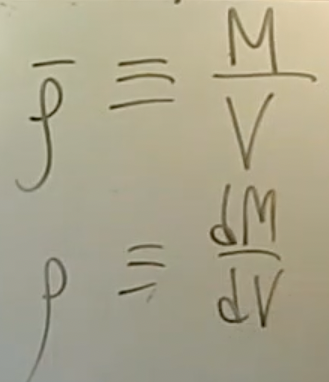 ρ̄ ≡ M/V
ρ ≡ dM/dV